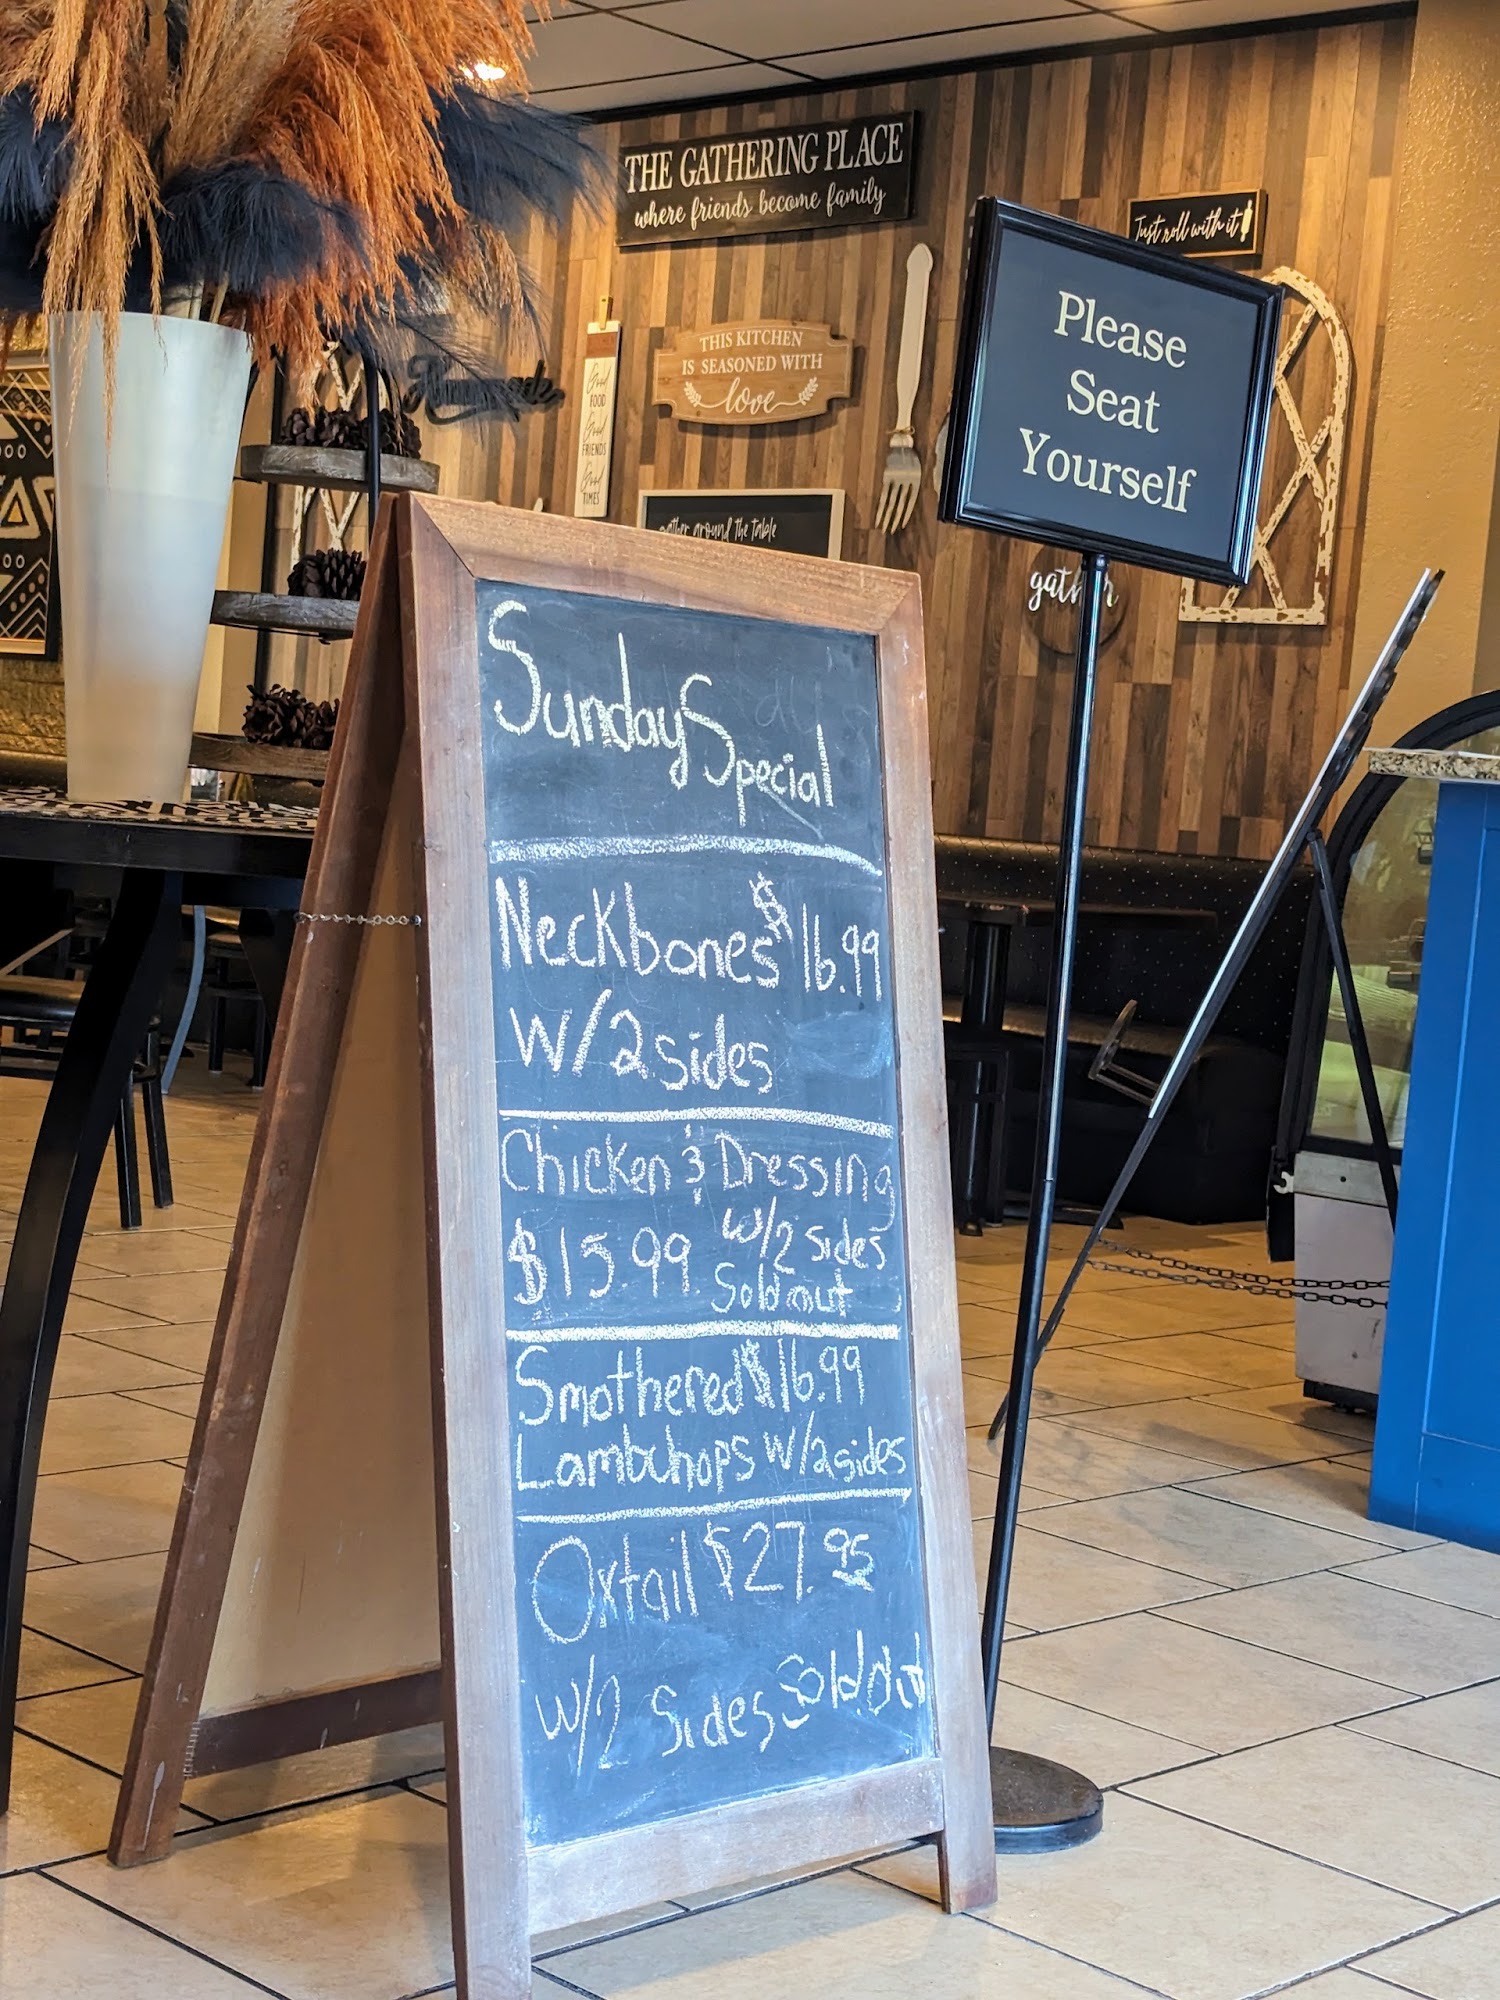 THE GATHERING PLACE
where friends become family
Just roll with it
Please
Seat
Yourself
THIS KITCHEN
IS SEASONED WITH
love
Homemade
Good
FOOD
Good
FRIENDS
Good
TIMES
gather around the table
gather
Sunday Special
Neckbones $16.99
W/2 sides
Chicken & Dressing
$15.99. w/2 sides
Sold out
Smothered $16.99
Lambchops W/2 sides
Oxtail $27.95
w/2 Sides Sold out